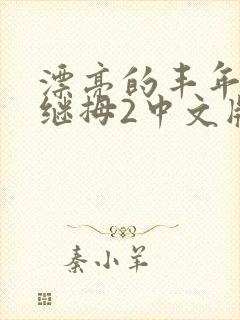 漂亮的丰年
继拇2中文版
秦小羊